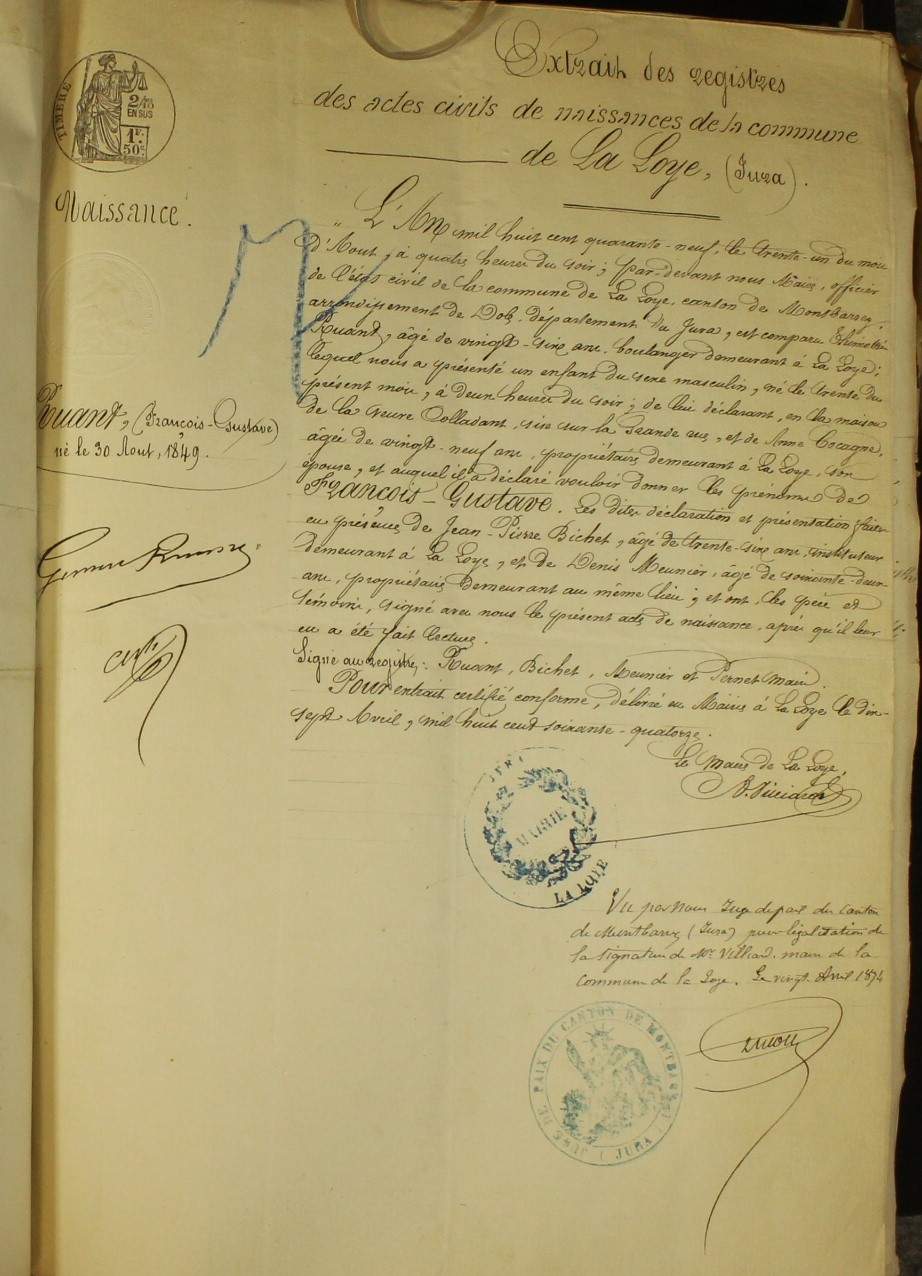 Extrait des registres
des actes civils de naissances de la commune
de La Loye, (Jura).
TIMBRE
2/10
EN SUS
1F.
50c
Naissance.
" L'An mil huit cent quarante-neuf, le trente-un du mois
d'Aout, à quatre heures du soir; par-devant nous Maire, officier
de l'état civil de la commune de La Loye, canton de Montbarrey,
arrondissement de Dole, département du Jura, est comparu
Ruant, âgé de vingt-six ans, boulanger demeurant à La Loye;
lequel nous a présenté un enfant du sexe masculin, né le trente du
présent mois, à deux heures du soir; de lui déclarant, en la maison
de la veuve Colladant, sise sur la Grande rue, et de Anne Cocagne,
âgée de vingt-neuf ans, propriétaire demeurant à La Loye, son
épouse, et auquel il a déclaré vouloir donner les prénoms de
François-Gustave. Les dites déclaration et présentation faites
en présence de Jean-Pierre Bichet, âgé de trente-six ans, instituteur
demeurant à La Loye, et de Denis Meunier, âgé de soixante-deux
ans, propriétaire demeurant au même lieu; et ont, les père et
témoins, signé avec nous le présent acte de naissance, après qu'il leur
en a été fait lecture.
Signé au registre: Ruant, Bichet, Meunier et Pernet maire.
Pour extrait certifié conforme, délivré en Mairie à La Loye le dix-
sept Avril, mil huit cent soixante-quatorze.
Ruant, (François-Gustave)
né le 30 Aout, 1849.
Le Maire de La Loye,
MAIRIE
LA LOYE
Vu par nous Juge de paix du Canton
de Montbarrey (Jura) pour légalisation de
la signature de Mr Villard, maire de la
Commune de la Loye. Le vingt Avril 1874
JUGE DE PAIX DU CANTON DE MONTBARREY
( JURA )